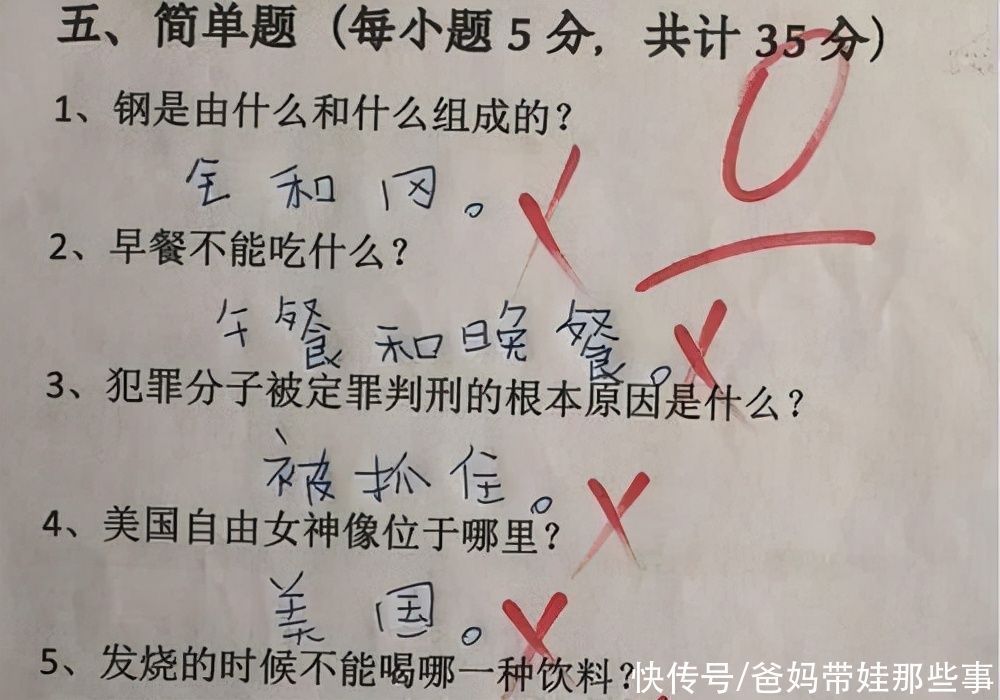 五、简单题（每小题 5 分，共计 35 分）
0
1、钢是由什么和什么组成的？
钅和冈。
2、早餐不能吃什么？
午餐和晚餐。
3、犯罪分子被定罪判刑的根本原因是什么？
被抓住。
4、美国自由女神像位于哪里？
美国。
5、发烧的时候不能喝哪一种饮料？
快传号/爸妈带娃那些事